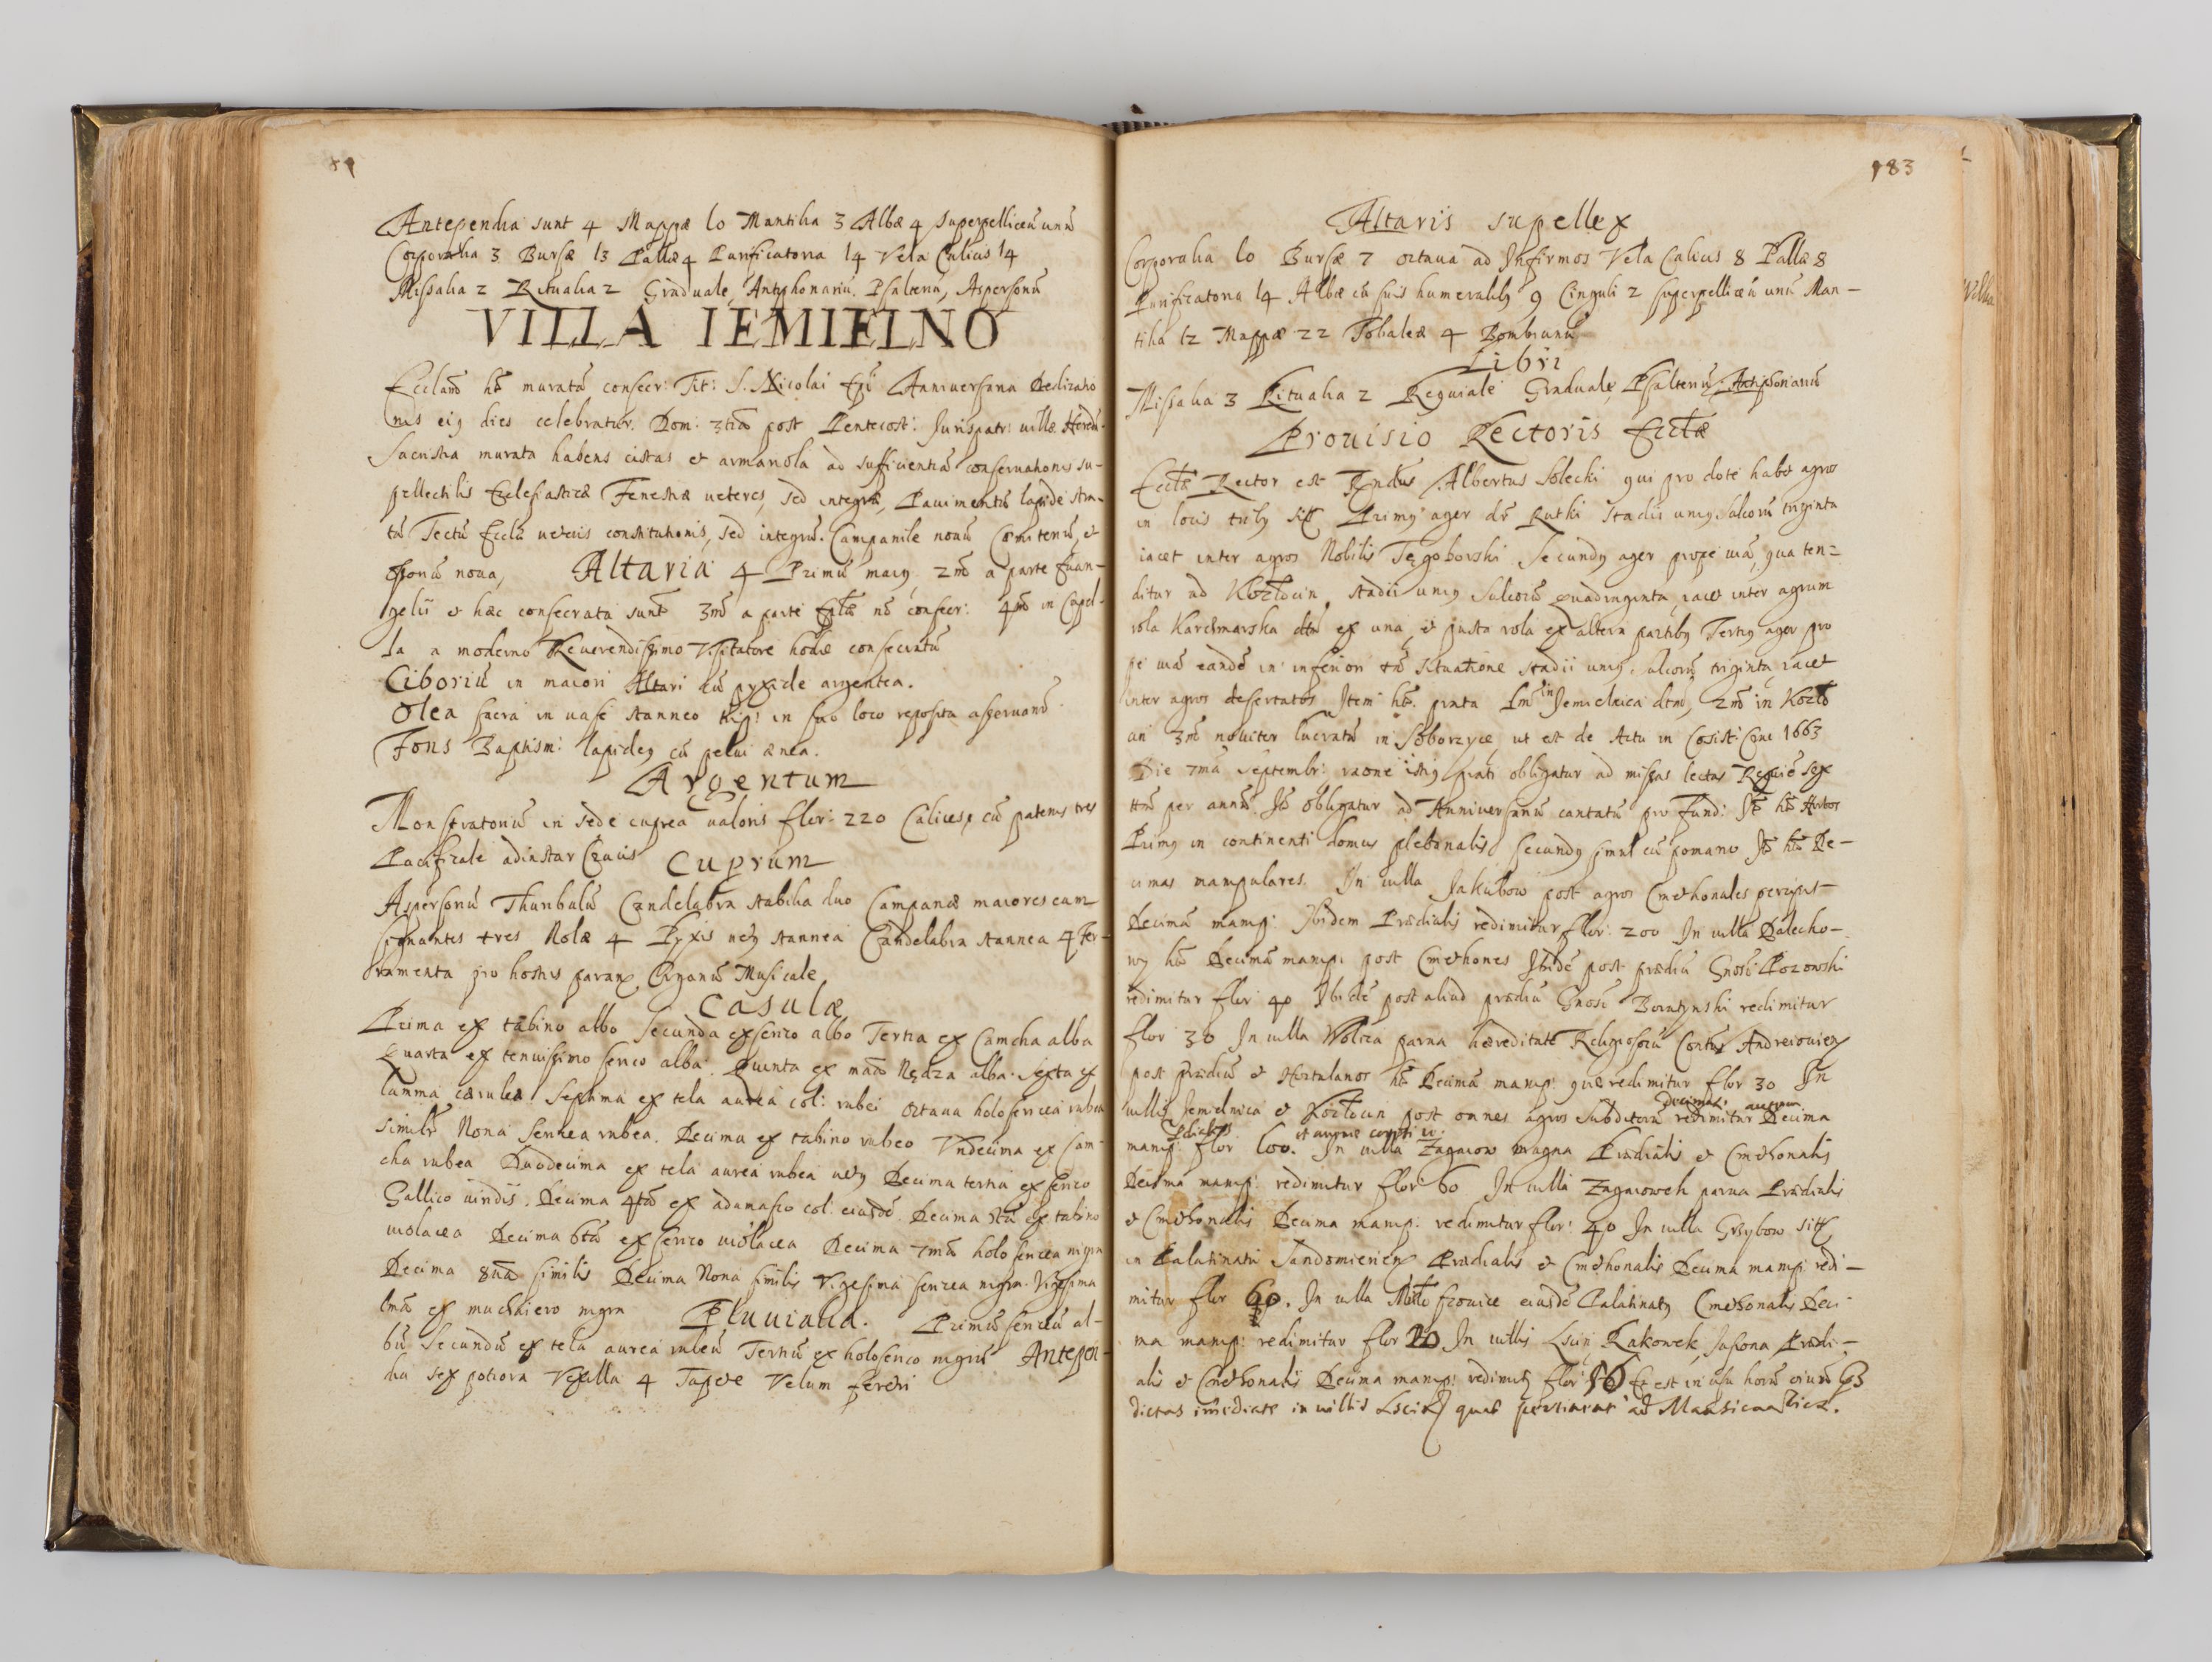 Antependia sunt 4 Mappæ 10 Mantilia 3 Albæ 4 superpelliceū unū
Corporalia 3 Bursæ 13 Pallæ 4 Purificatoria 14 Vela Calicis 14
Missalia 2 Ritualia 2 Graduale, Antiphonariū. Psalteriū, Aspersoriū
VILLA IEMIELNO
Eccłam ht̄ muratā consecr: Tit: S. Nicolai Epī Anniversaria Dedicatio
nis eiꝰ dies celebratur. Dom: 3tia post Pentecost: Jurispatr: villæ Hered:
Sacristia murata habens cistas et armariola ad sufficientiā conservationis su-
pellectilis Ecclesiasticæ Fenestræ veteres, sed integræ, Pavimentū lapide stra-
tū Tectū Eccłæ veteris constitutionis, sed integrū. Campanile novū Cæmiteriū, et
Ossoriū nova, Altaria 4 Primū maiꝰ 2m̄ a parte Euan-
gelii et hæc consecrata sunt 3m̄ a parte Ep̄læ nō consecr: 4m̄ in Capel-
la a moderno Reverendissimo Visitatore hodie consecratū
Ciboriū in maiori Altari cū pyxide argentea.
Olea sacra in vase stanneo in suo loco reposita asservant̄.
Fons Baptism: lapideꝰ cū pelvi ænea.
Argentum
Monstratoriū in sede cuprea valoris flor: 220 Calices cū patenis tres
Pacificale adinstar Crucis Cuprum
Aspersoriū Thuribulū Candelabra stabilia duo Campanæ maiores cum
signantes tres Nolæ 4 Pyxis stannea Candelabra stannea 4 Fer-
ramenta pro hostiis parand Organū Musicale
Casulæ
Prima ex tabino albo Secunda ex serico albo Tertia ex Camcha alba
Quarta ex tenuissimo serico alba. Quinta ex Nędza alba. Sexta ex
lamma cærulea Septima ex tela aurea col: rubei octava holosericea rubea
similr̄ Nona sericea rubea. Decima ex tabino rubeo Undecima ex Cam-
cha rubea Duodecima ex tela aurea rubea Decima tertia ex serico
Gallico viridis. Decima 4ta ex adamasco col: eiusdē. Decima 5ta ex tabino
violacea Decima 6ta ex serico violacea Decima 7ma holosericea nigra
Decima 8va similis Decima Nona similis Vigesima sericea nigra. Vigesima
1ma ex muchaiero nigra Pluvialia. Primū sericeū al-
bū Secundū ex tela aurea rubeū Tertiū ex holoserico nigrū Antepen-
dia sex potiora Vexilla 4 Tapete Velum feretri
183
Altaris supellex
Corporalia 10 Bursæ 7 octava ad Infirmos Vela Calicis 8 Pallæ 8
Purificatoria 14 Albæ cū suis humeralibꝰ 9 Cinguli 2 superpelliceū unū Man-
tilia 12 Mappæ 22 Tobaleæ 4 Bombicinū
Libri
Missalia 3 Ritualia 2 Requiale Graduale Psalteriū Antiphonariū
Provisio Rectoris Eccłæ
Eccłæ Rector est Rndus Albertus Solecki qui pro dote habet agros
in locis tribꝰ Primꝰ ager dr̄ Rutki Stadii uniꝰ, sulcorū triginta
iacet inter agros Nobilis Tęgoborski Secundꝰ ager prope viā, qua ten-
ditur ad Kozłow, stadii uniꝰ Sulcorū quadraginta, iacet inter agrum
rola Karchmarska dtū ex una, et pusta rola ex altera partibꝰ Tertiꝰ ager pro
pe viā eandē in inferiori tn̄ situatione stadii uniꝰ, sulcorū triginta, iacet
inter agros desertatos Item ht̄. prata 1m̄ in Jemielnica dtm̄, 2m̄ in Kozło
3m̄ noviter lucratū in Soborzyce, ut est de Actu in 1663
Die 7ma Septembr: raōne istiꝰ prati obligatur ad missas lectas Requiē sex
per annū. It̄ obligatur ad Anniversariū cantatū pro Fund: It̄ ht̄ Hortos
Primꝰ in continenti domus plebanalis Secundꝰ simul cū pomario It̄ ht̄ De-
cimas manipulares. In villa Jakubow post agros Cmethonales percipit
Decimā manip: Ibidem Prædialis redimitur flor: 200 In villa Dalecho-
wy ht̄ Decimā manip: post Cmethones Ibidē post prædiū Gnosi Pozowski
redimitur flor 40 Ibidē post aliud prædiū Gnosi redimitur
flor 30 In villa Wolica parva hæreditate Religiosorū
post prædiū et Hortulanos ht̄ Decimā manip: quæ redimitur flor 30 In
villis Jemelnica et post omnes agros Subditorū redimitur Decima
manip: flor 100. In villa Zagaiow magna Prædialis et Cmethonalis
Decima manip: redimitur flor 60 In villa Zagaiowek parva Prædialis
et Cmethonalis Decima manip: redimitur flor: 40 In villa Grzybow
in Palatinatu Sandomirien Prædialis et Cmethonalis Decima manip: redi-
mitur flor 60. In villa eiusdē Palatinatꝰ Cmethonalis Deci-
ma manip: redimitur flor 20 In villis Rakowek Prædi-
alis et Cmethonalis Decima manip: redimitꝰ flor 50 Et est in usu horū
dictas im̄ediate in villis quae pertinent ad